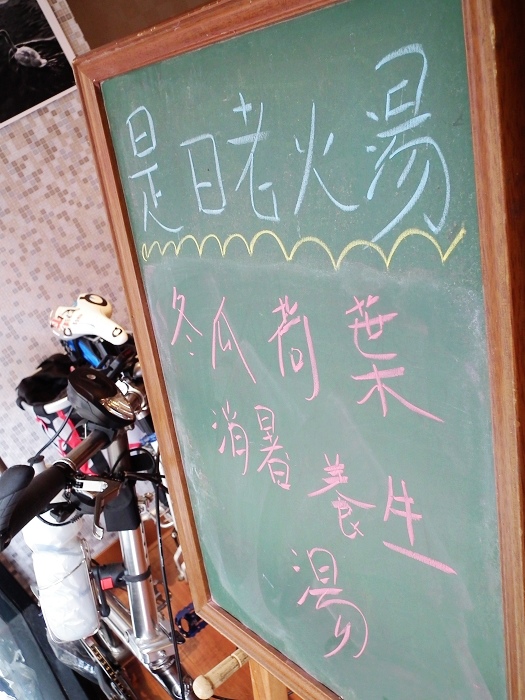 是日老火湯
冬瓜荷葉
消暑養生
湯